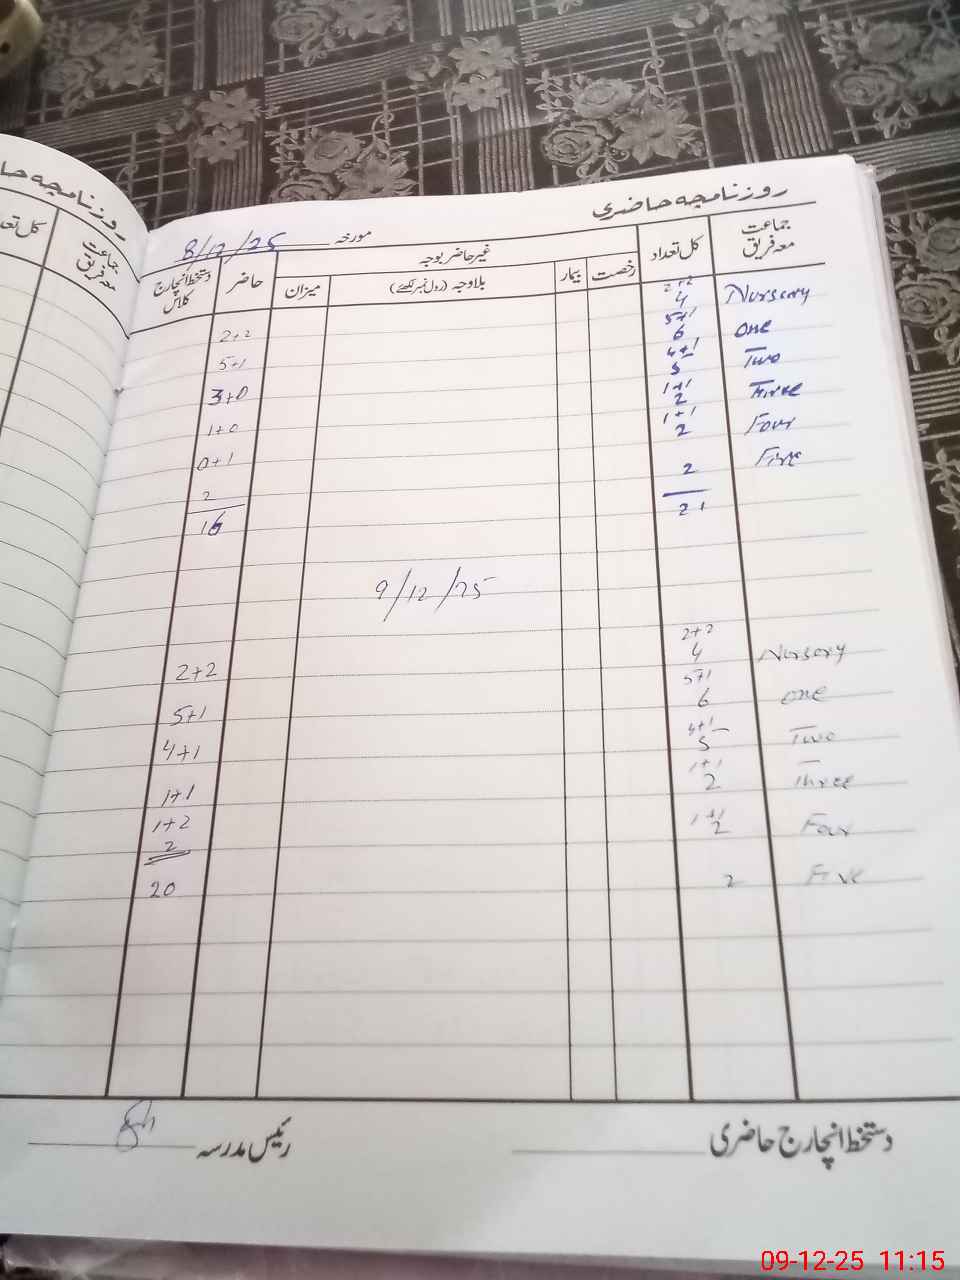 روزنامچہ حاضری
مورخہ 8/12/25
جماعت معہ فریق
کل تعداد
غیر حاضر بوجہ
رخصت
بیمار
بلاوجہ (رول نمبر لکھئے)
میزان
حاضر
دستخط انچارج کلاس
Nursery 2+2 4 2+2
One 5+1 6 5+1
Two 4+1 5 3+0
Three 1+1 2 1+0
Four 1+1 2 0+1
Five 2 2
21 16
9/12/25
Nursery 2+2 4 2+2
One 5+1 6 5+1
Two 4+1 5 4+1
Three 1+1 2 1+1
Four 1+1 2 1+2
Five 2 2
20
دستخط انچارج حاضری
رئیس مدرسہ
روزنامچہ حا
جماعت معہ فریق
کل تعد
09-12-25 11:15